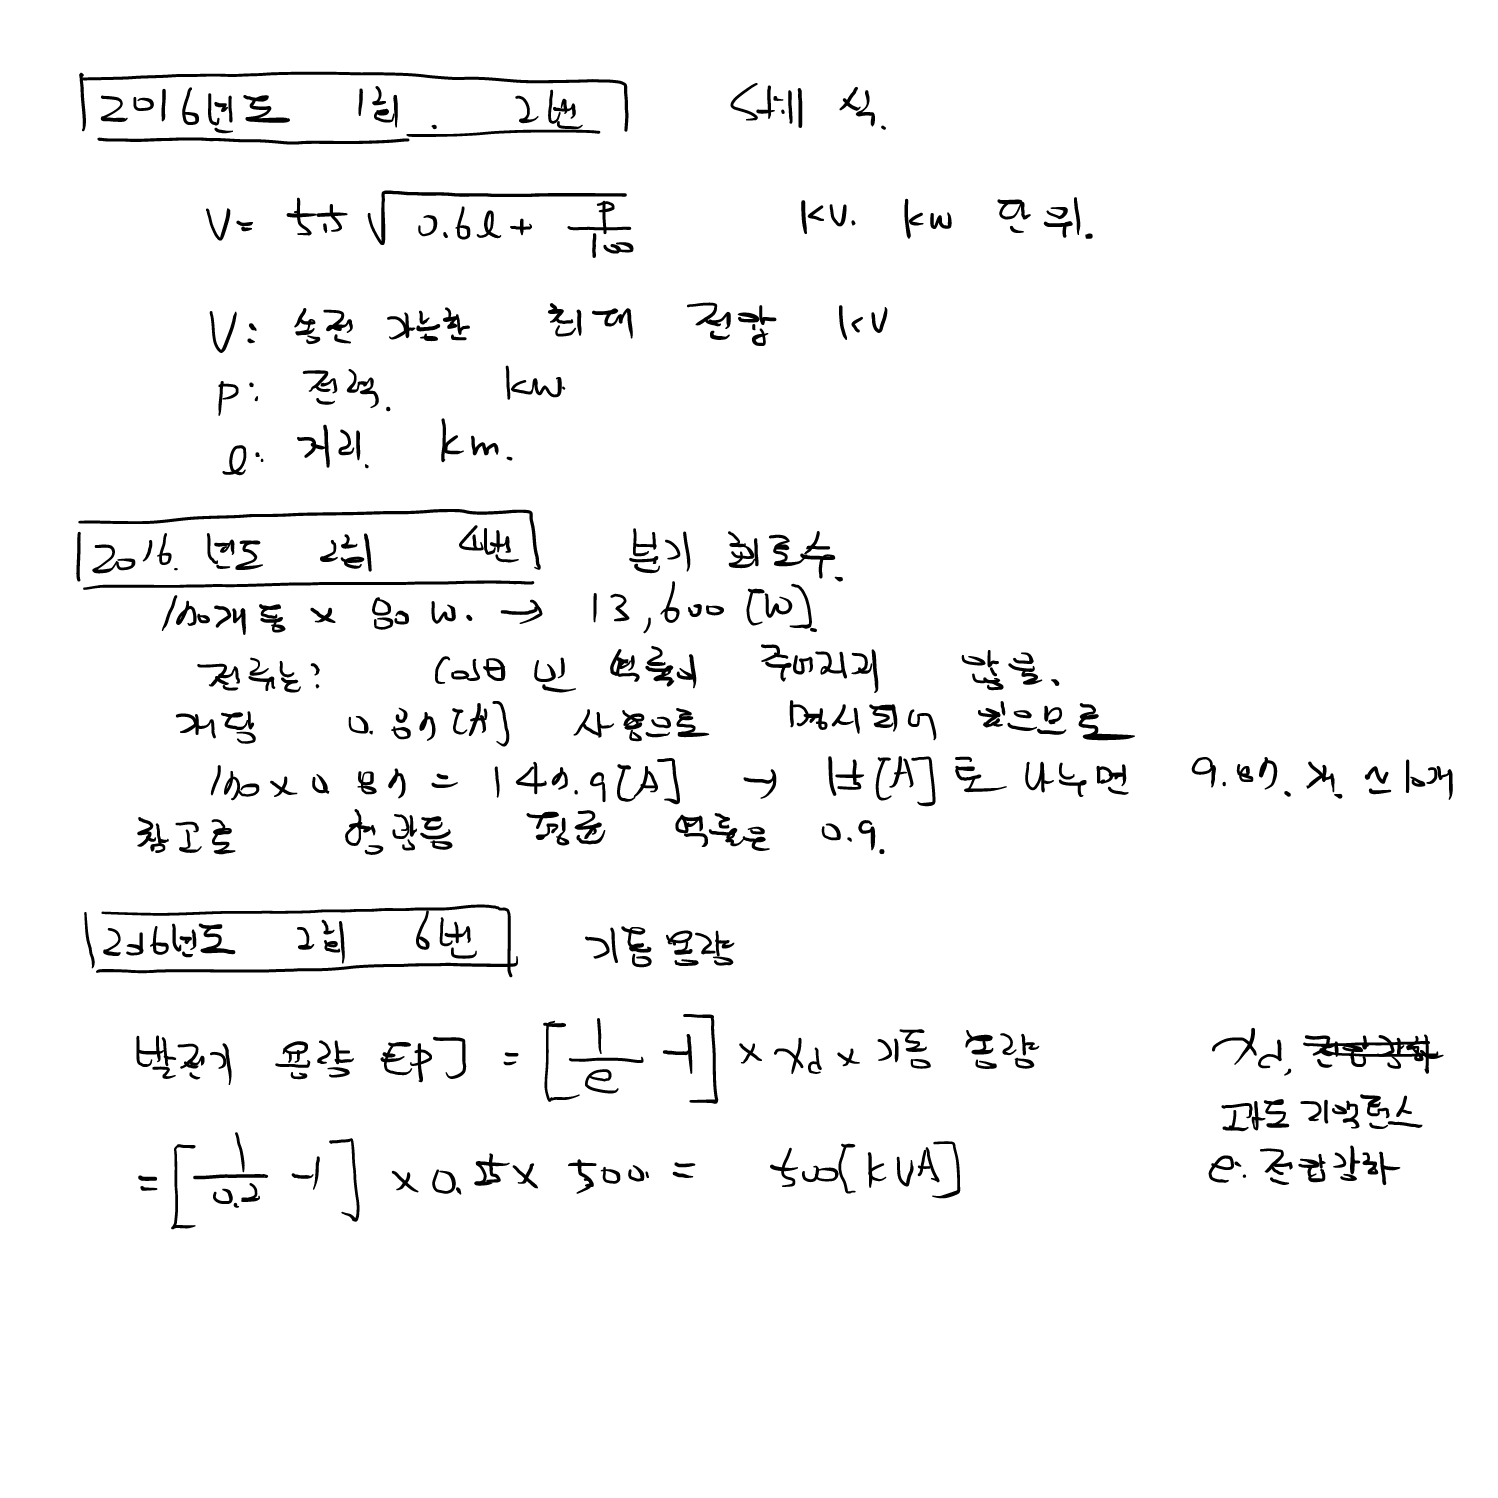 2016년도 1회. 2번 Still 식.
V = 5.5 √(0.6l + P/100) kV. kW 단위.
V: 송전 가능한 최대 전압 kV
P: 전력. kW
l: 거리. km.
2016.년도 2회 4번 분기회로수.
170개등 × 80W. → 13,600 [W].
전류는? cosθ 인 역률이 주어지지 않음.
개당 0.87[A] 사용으로 명시되어 있으므로
170 × 0.87 = 147.9[A] → 15[A]로 나누면 9.87. 개. ≃ 10개
참고로 형광등 평균 역률은 0.9.
2016년도 2회 6번 기동용량
발전기 용량 [P] = [1/e - 1] × Xd × 기동 용량 Xd,
과도 리액턴스
= [1/0.2 - 1] × 0.25 × 500. = 500[kVA] e: 전압강하